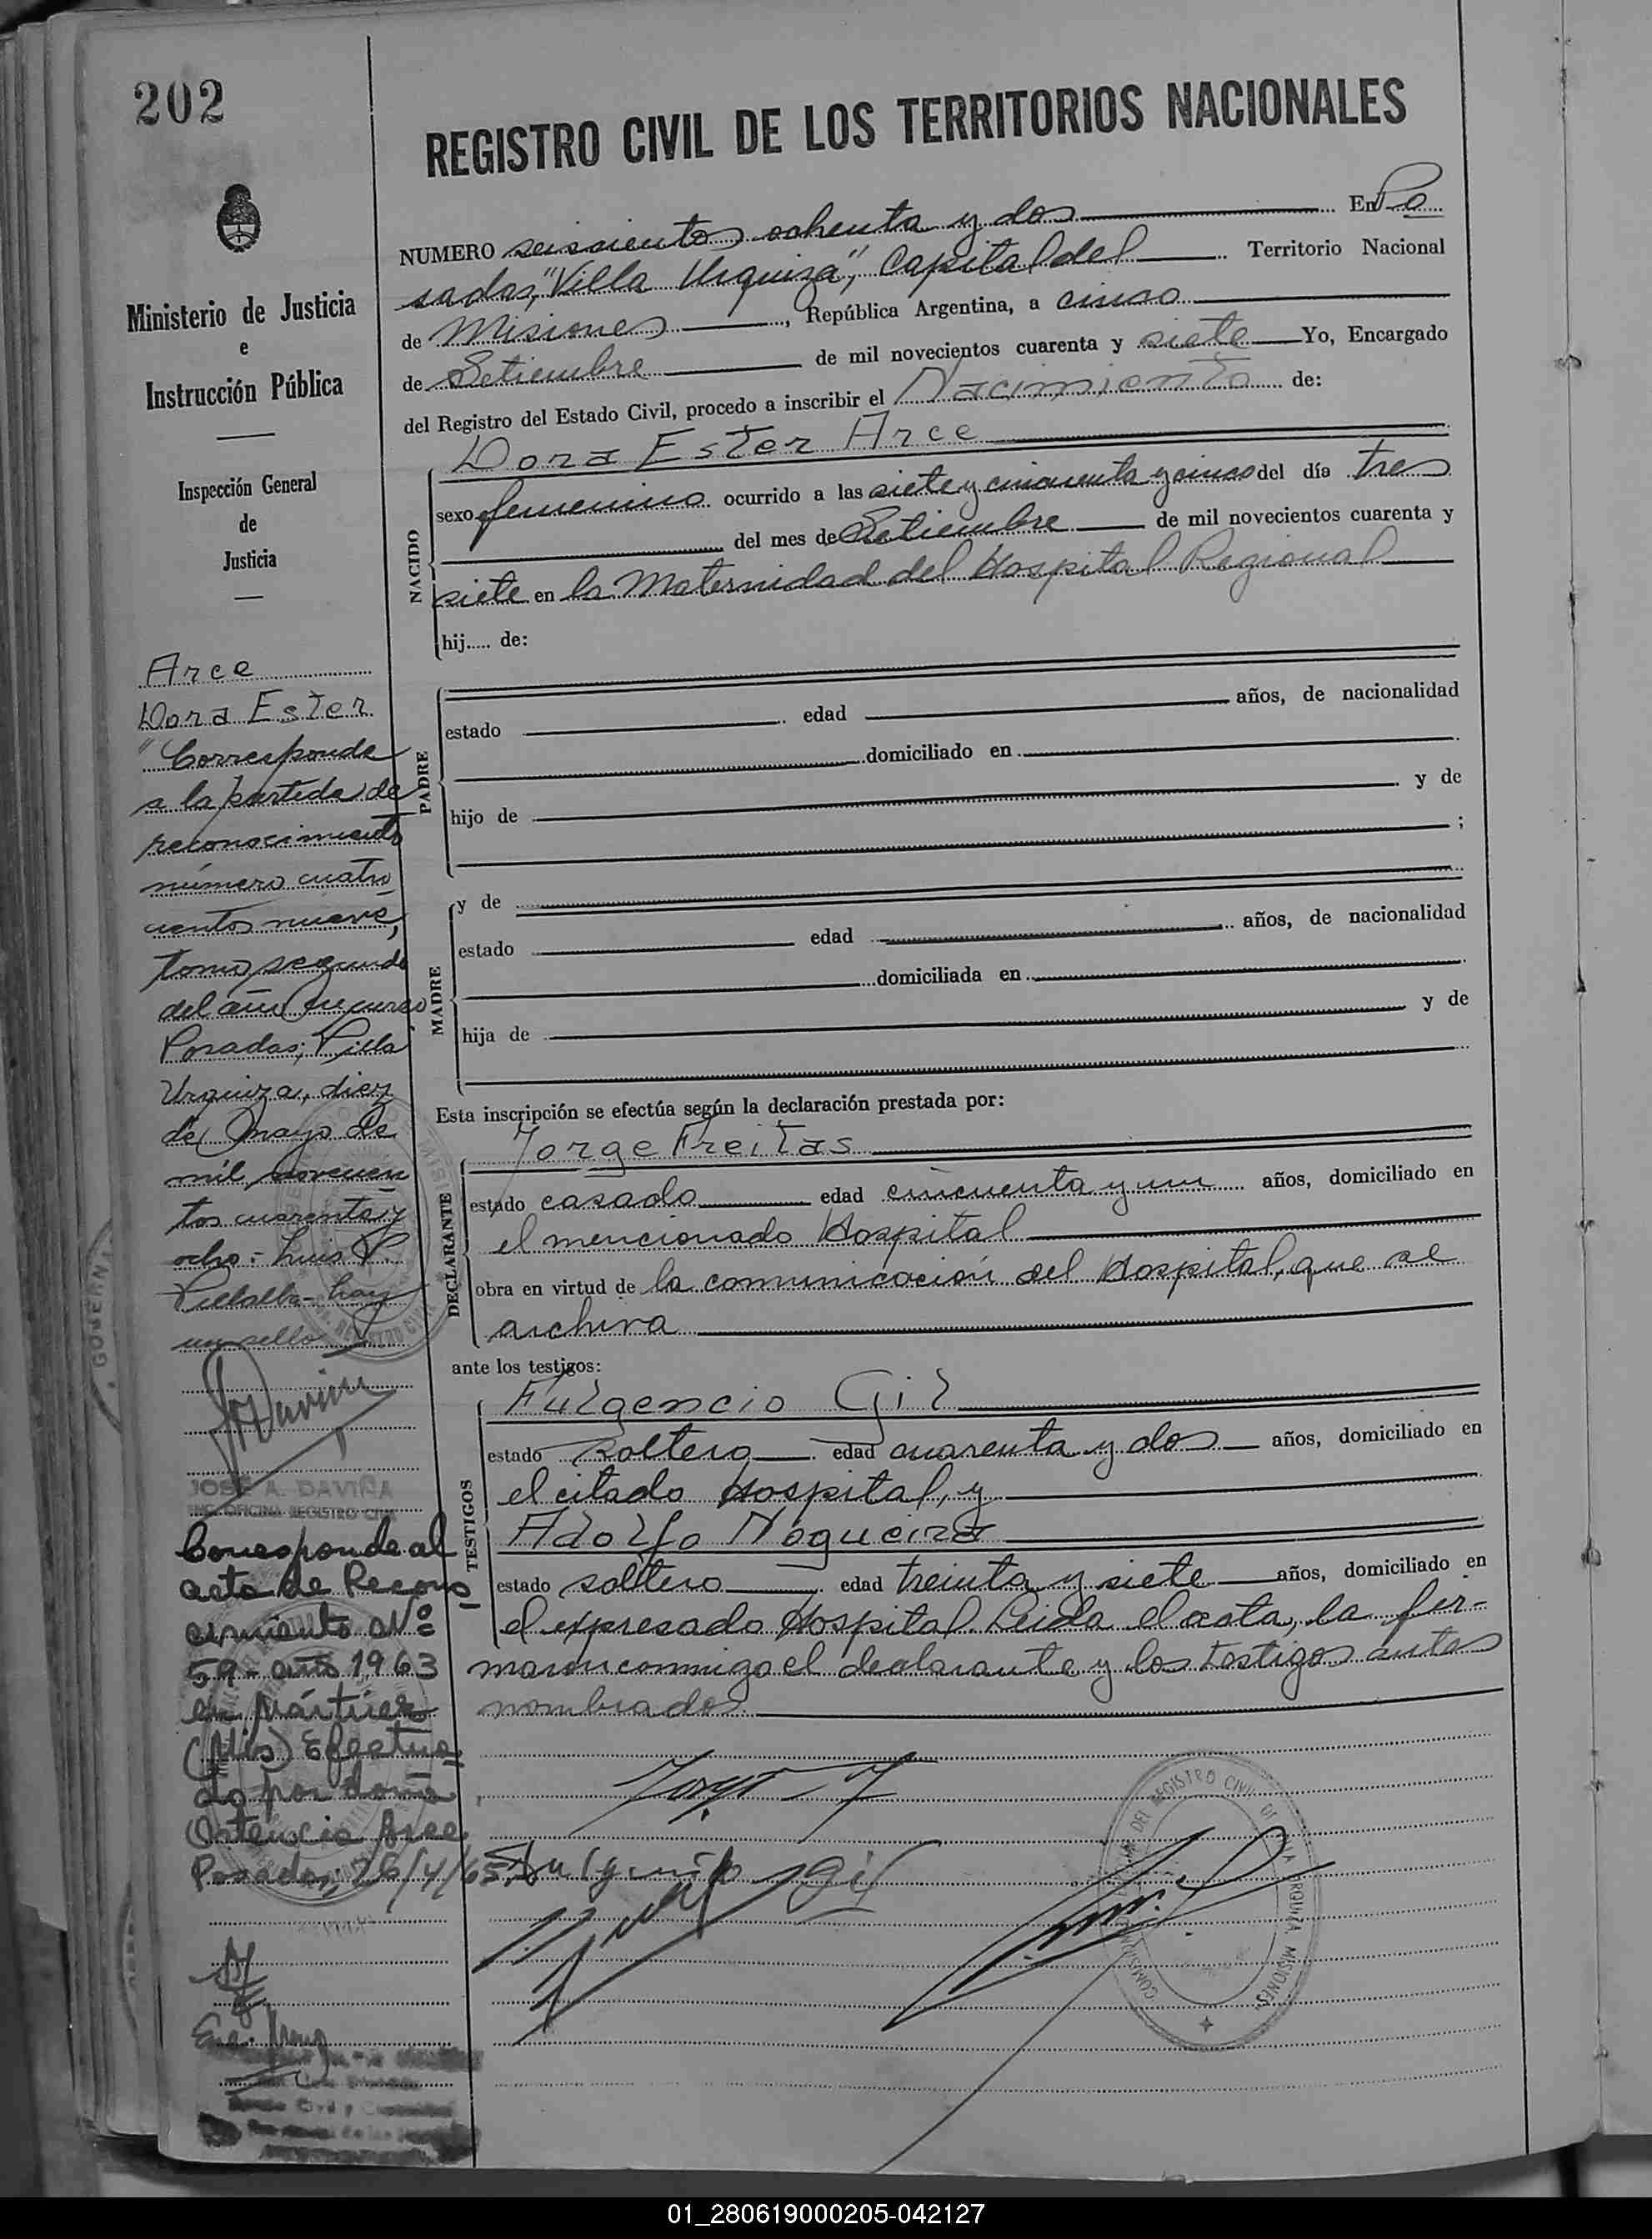 202
REGISTRO CIVIL DE LOS TERRITORIOS NACIONALES
Ministerio de Justicia
e
Instrucción Pública
Inspección General
de
Justicia
NUMERO seiscientos ochenta y dos En Po
sadas, "Villa Urquiza", Capital del Territorio Nacional
de Misiones, República Argentina, a cinco
de Setiembre de mil novecientos cuarenta y siete Yo, Encargado
del Registro del Estado Civil, procedo a inscribir el Nacimiento de:
Dora Ester Arce
NACIDO
sexo femenino ocurrido a las siete y cincuenta y cinco del día tres
del mes de Setiembre de mil novecientos cuarenta y
siete en la Maternidad del Hospital Regional
hij..... de:
PADRE
estado edad años, de nacionalidad
domiciliado en
hijo de y de
;
MADRE
y de
estado edad años, de nacionalidad
domiciliada en
hija de y de
Esta inscripción se efectúa según la declaración prestada por:
DECLARANTE
Jorge Freitas
estado casado edad cincuenta y un años, domiciliado en
el mencionado Hospital
obra en virtud de la comunicación del Hospital, que se
archiva
ante los testigos:
TESTIGOS
Fulgencio Gil
estado soltero edad cuarenta y dos años, domiciliado en
el citado Hospital, y
Adolfo Nogueira
estado soltero edad treinta y siete años, domiciliado en
el expresado Hospital. Leida el acta, la fir-
maron conmigo el declarante y los testigos antes
nombrados
Jorge F
Fulgencio Gil
COMISION DEL REGISTRO CIVIL VILLA URQUIZA MISIONES
Arce
Dora Ester
"Corresponde
a la partida de
reconocimiento
número cuatro
cientos nueve,
tomo segundo
del año en curso
Posadas, Villa
Urquiza, diez
de Mayo de
mil novecien
tos cuarenta y
ocho - Luis P.
Villalba - hay
un sello
JOSE A. DAVIÑA
ENC. OFICINA REGISTRO CIVIL
Corresponde al
acta de Recono
cimiento Nº
59 - año 1963
en Mártires
(Mis) Efectua
do por doña
Ortencia Arce
Posadas, 26/4/65
01_280619000205-042127